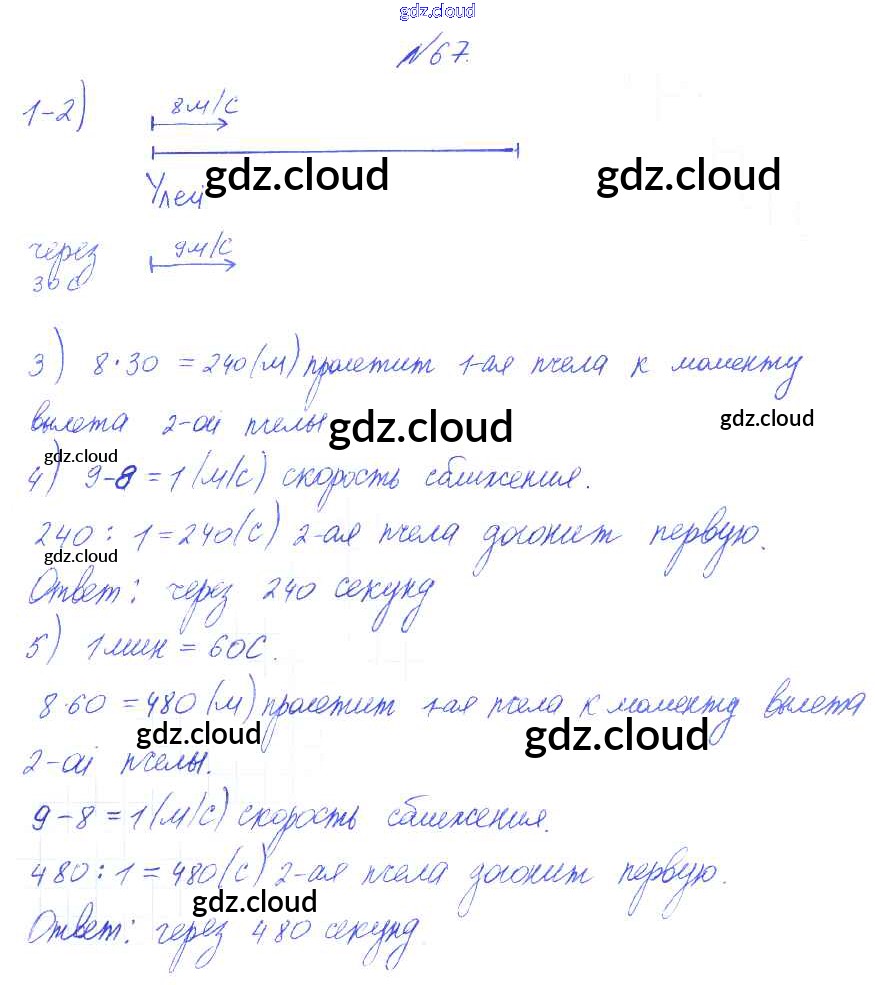 gdz.cloud
№67.
1-2) 8м/с
Улей gdz.cloud gdz.cloud
через 9м/с
30с
3) 8·30 = 240(м) пролетит 1-ая пчела к моменту
вылета 2-ой пчелы gdz.cloud gdz.cloud
gdz.cloud
4) 9-8 = 1 (м/с) скорость сближения.
240 : 1 = 240(с) 2-ая пчела догонит первую.
gdz.cloud
Ответ: через 240 секунд
5) 1 мин = 60с.
8·60 = 480 (м) пролетит 1-ая пчела к моменту вылета
gdz.cloud gdz.cloud
2-ой пчелы.
9-8 = 1(м/с) скорость сближения.
480 : 1 = 480(с) 2-ая пчела догонит первую.
gdz.cloud
Ответ: через 480 секунд.